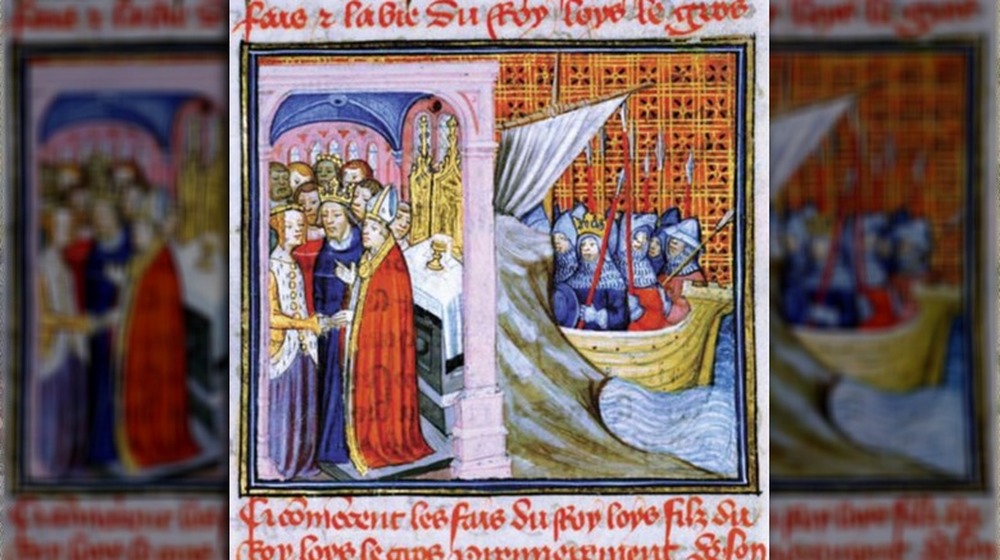 fais ⁊ la vie du Roy loys le gros
Ci cōmēcent les fais du Roy loys filz du
Roy loys le gros